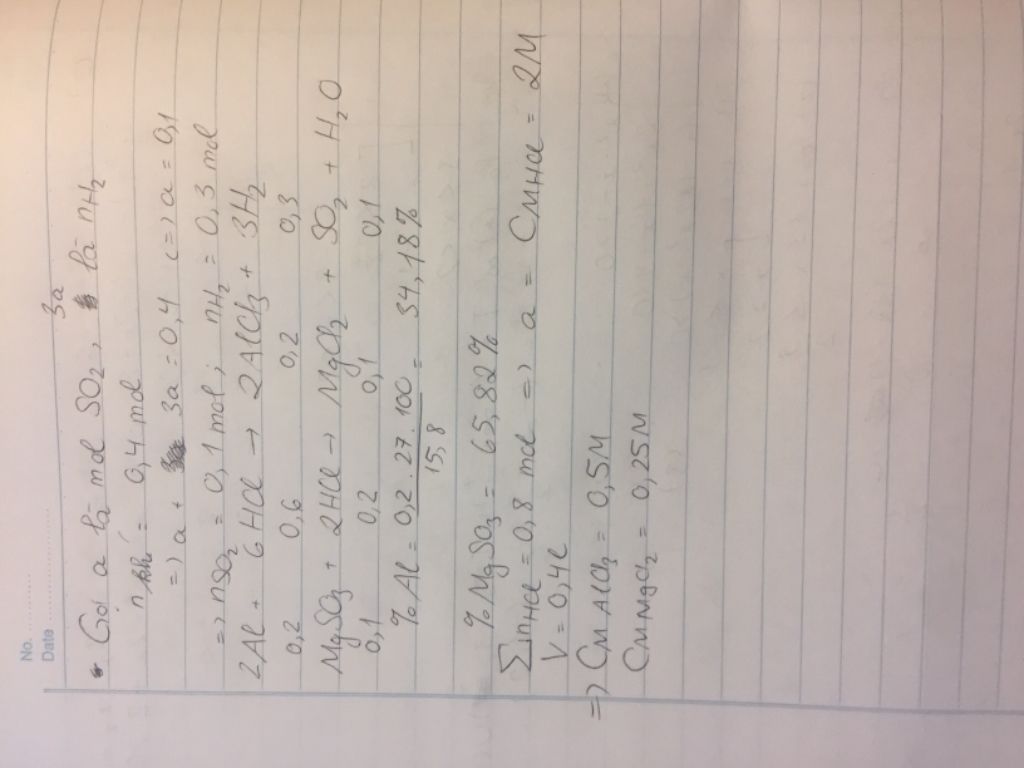 No. ............
Date ............
Gọi a là mol SO2, 3a là nH2
n khí = 0,4 mol
=) a + 3a = 0,4 (=) a = 0,1
=) nSO2 = 0,1 mol; nH2 = 0,3 mol
2Al + 6HCl → 2AlCl3 + 3H2
0,2 0,6 0,2 0,3
MgSO3 + 2HCl → MgCl2 + SO2 + H2O
0,1 0,2 0,1 0,1
% Al = 0,2.27.100 / 15,8 = 34,18%
% MgSO3 = 65,82%
∑nHCl = 0,8 mol =) a = CMHCl = 2M
V = 0,4l
=) CM AlCl3 = 0,5M
CM MgCl2 = 0,25M